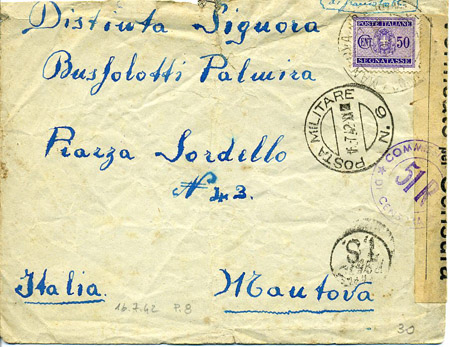 Distinta Signora
Bussolotti Palmira
Piazza Sordello
N 43
Italia
Mantova
POSTE ITALIANE
CENT. 50
SEGNATASSE
POSTA MILITARE N. 9
16.7.42 XX
51
S.T.
Censura
16.7.42 P.8
30